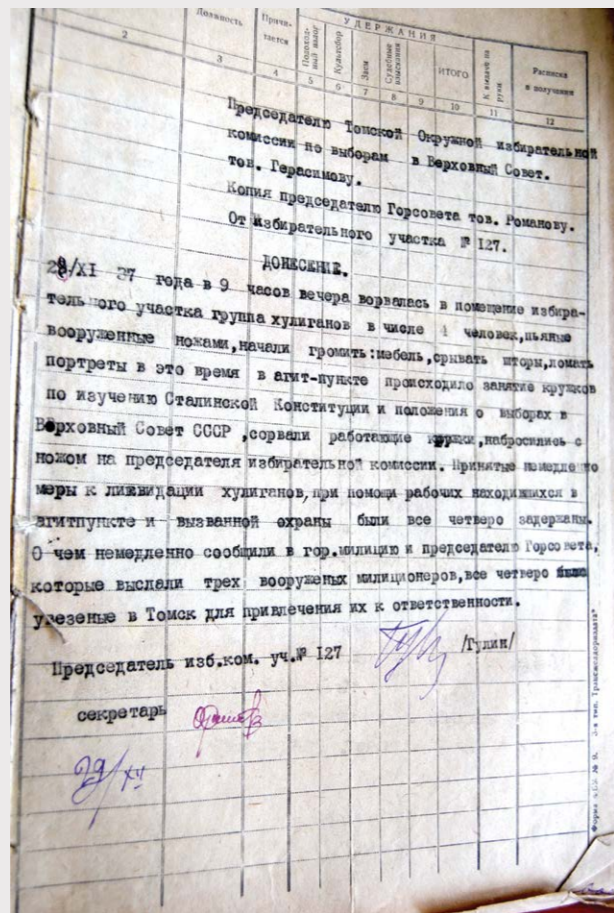 Должность
Причи-
тается
УДЕРЖАНИЯ
Подоход-
ный налог
Культсбор
Заем
Судебные
взыскания
ИТОГО
К выдаче на
руки
Расписка
в получении
2 3 4 5 6 7 8 9 10 11 12
Председателю Томской Окружной избирательной
комиссии по выборам в Верховный Совет.
тов. Герасимову.
Копия председателю Горсовета тов. Романову.
От избирательного участка № 127.
ДОНЕСЕНИЕ.
28/XI 37 года в 9 часов вечера ворвалась в помещение избира-
тельного участка группа хулиганов в числе 4 человек,пьяные
вооруженные ножами,начали громить:мебель,срывать шторы,ломать
портреты в это время в агит-пункте происходило занятие кружков
по изучению Сталинской Конституции и положения о выборах в
Верховный Совет СССР ,сорвали работающие кружки,набросились с
ножом на председателя избирательной комиссии. Принятые немедленно
меры к ликвидации хулиганов,при помощи рабочих находившихся в
агитпункте и вызванной охраны были все четверо задержаны.
О чем немедленно сообщили в гор.милицию и председателю Горсовета,
которые выслали трех вооруженых милиционеров,все четверо были
увезеные в Томск для привлечения их к ответственности.
Председатель изб.ком. уч.№ 127 /Гулин/
секретарь
29/XI